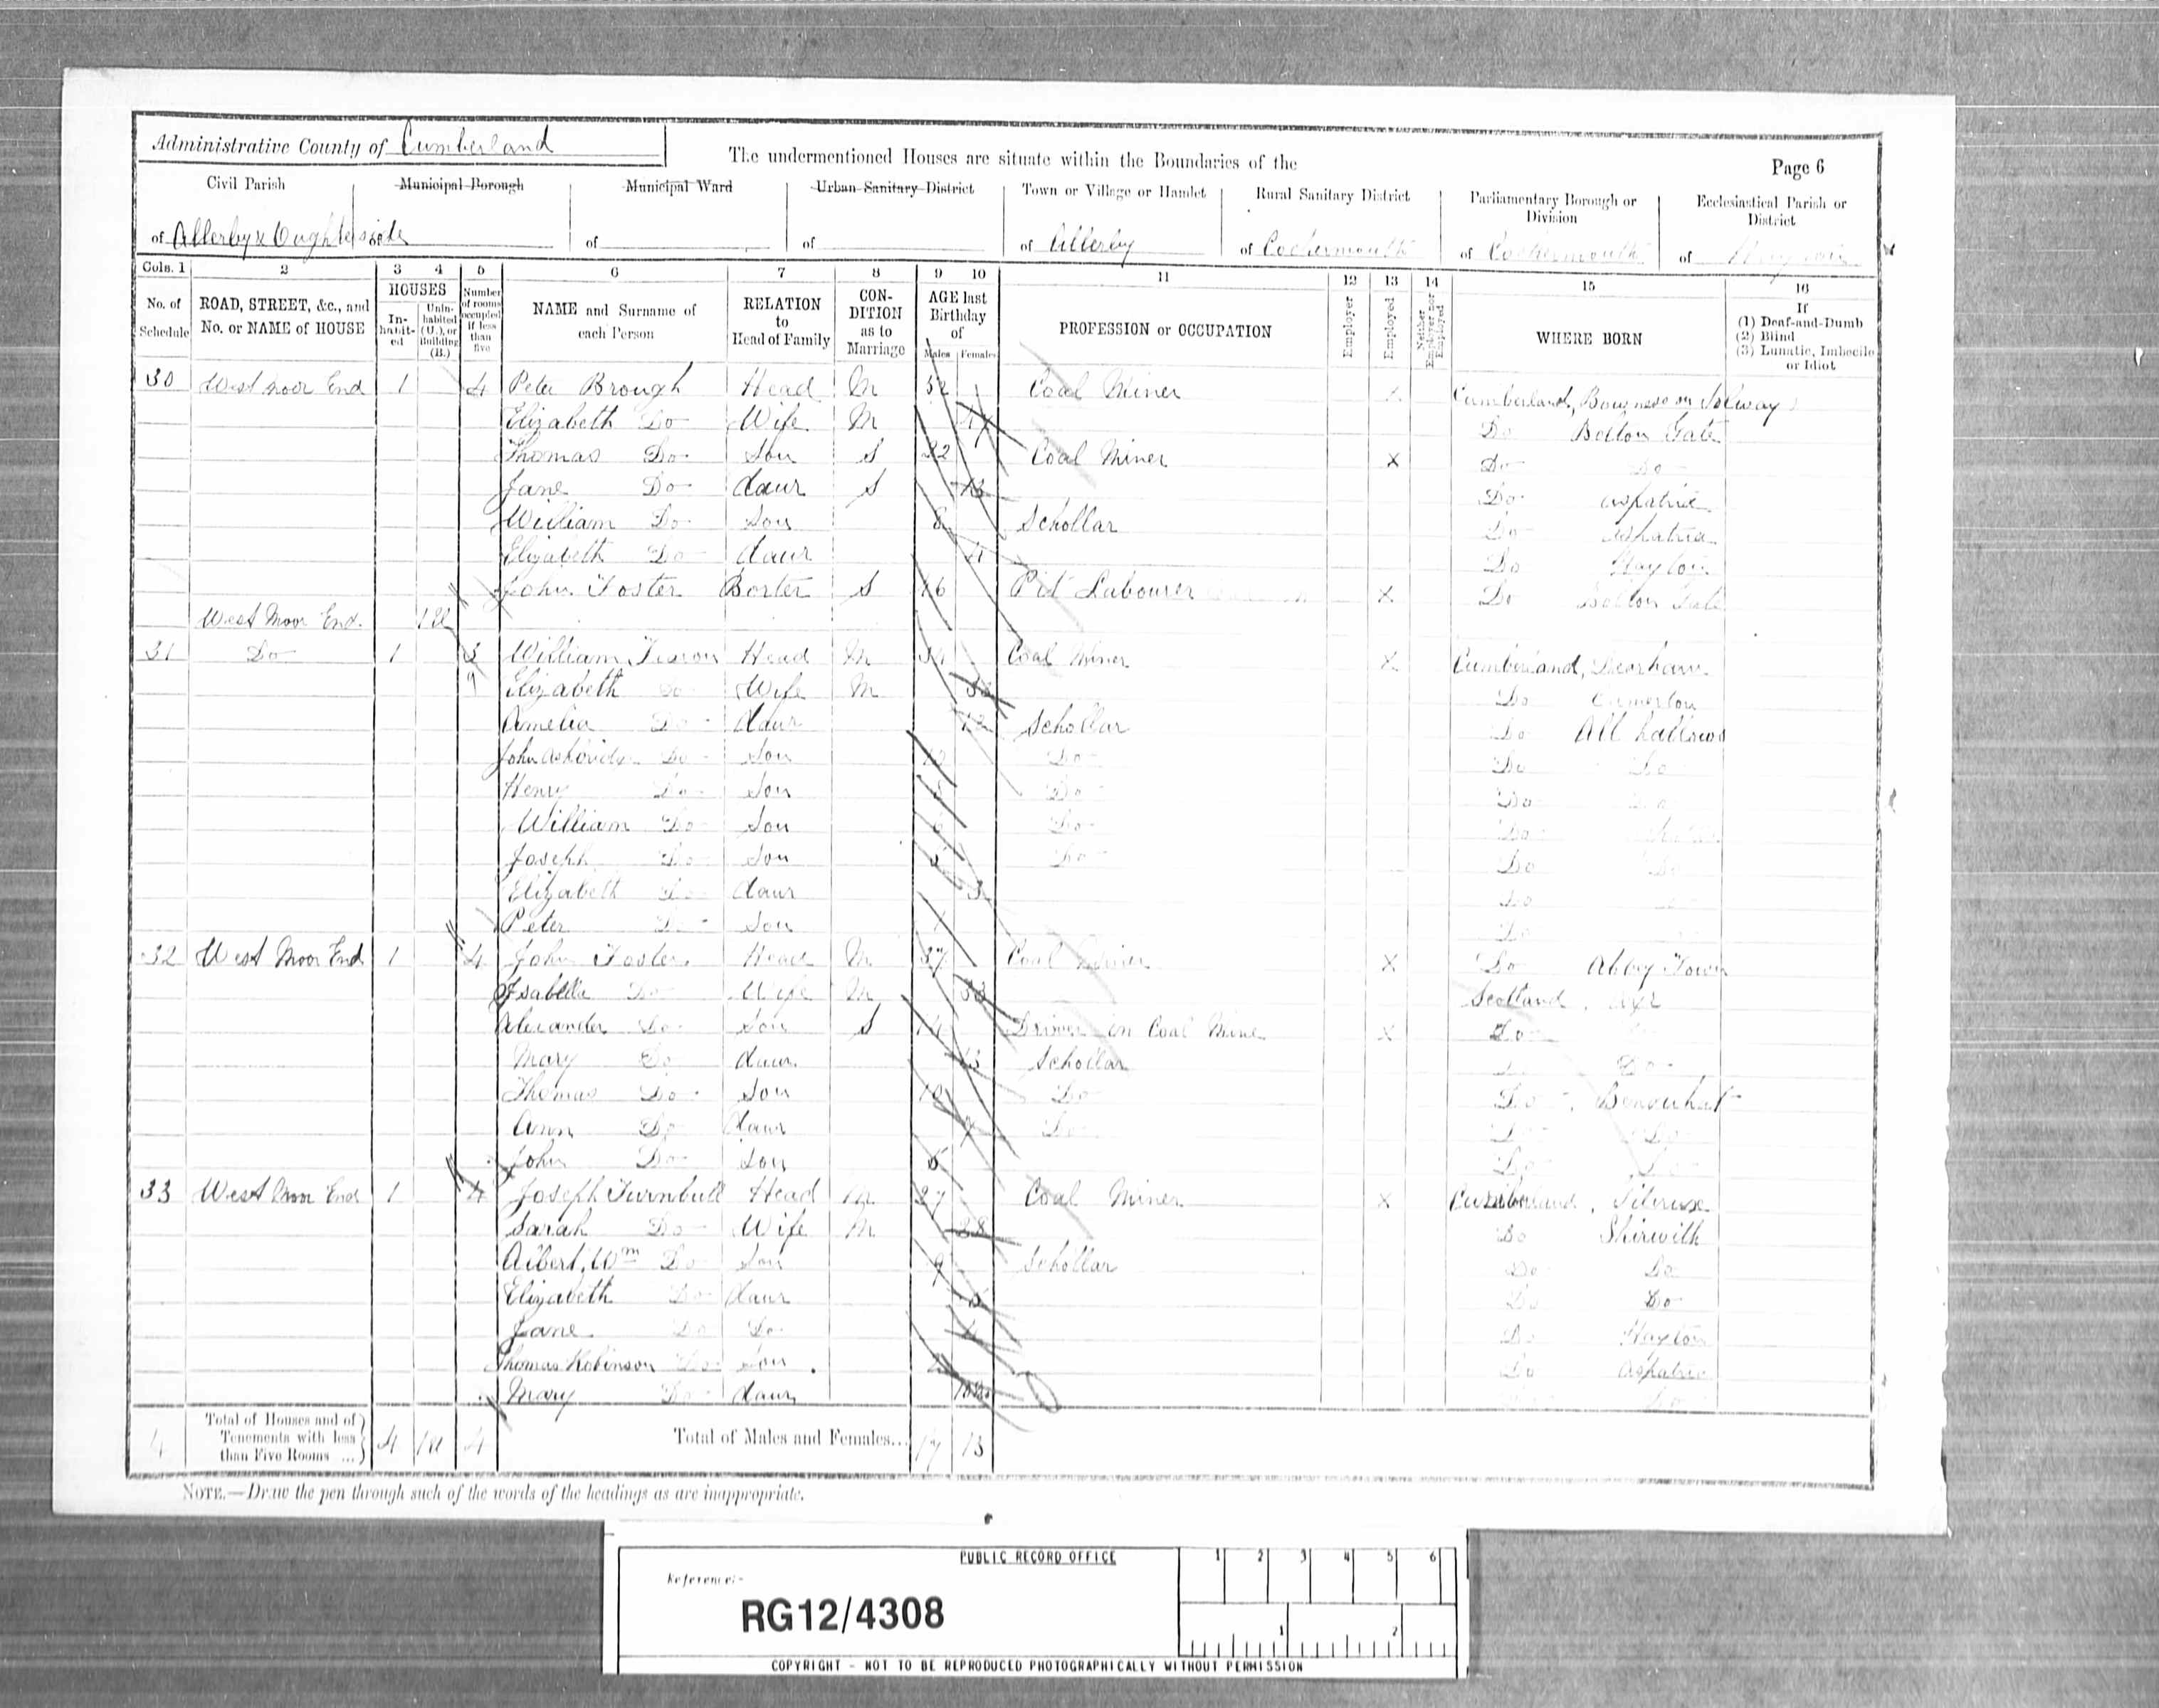 Administrative County of Cumberland
The undermentioned Houses are situate within the Boundaries of the
Page 6
Civil Parish
Municipal Borough
Municipal Ward
Urban Sanitary District
Town or Village or Hamlet
Rural Sanitary District
Parliamentary Borough or Division
Ecclesiastical Parish or District
of Allerby & Oughterside
of
of
of
of Allerby
of Cockermouth
of Cockermouth
of
Cols. 1 2 3 4 5 6 7 8 9 10 11 12 13 14 15 16
No. of Schedule
ROAD, STREET, &c., and No. or NAME of HOUSE
HOUSES
In-habit-ed
Unin-habited (U.), or Building (B.)
Number of rooms occupied if less than five
NAME and Surname of each Person
RELATION to Head of Family
CON-DITION as to Marriage
AGE last Birthday of
Males Females
PROFESSION or OCCUPATION
Employer
Employed
Neither Employer nor Employed
WHERE BORN
If
(1) Deaf-and-Dumb
(2) Blind
(3) Lunatic, Imbecile or Idiot
30 West Moor End 1 4 Peter Brough Head M 52 Coal Miner X Cumberland, Bowness on Solway
Elizabeth Do Wife M Do Bolton Gate
Thomas Do Son S 22 Coal Miner X Do Do
Jane Do daur S 13 Do Aspatria
William Do Son 8 Schollar Do Aspatria
Elizabeth Do daur 4 Do Hayton
John Foster Border S 16 Pit Labourer X Do Bolton Gate
West Moor End 1 U
31 Do 1 3 William Head M 34 Coal Miner X Cumberland, Dearham
Elizabeth Do Wife M Do Camerton
Amelia Do daur 12 Schollar Do All hallows
John Do Son Do Do Do
Henry Do Son Do Do Do
William Do Son Do Do
Joseph Do Son Do Do Do
Elizabeth Do daur 3 Do
Peter Do Son 1 Do
32 West Moor End 1 4 John Foster Head M 37 Coal Miner X Do Abbey Town
Isabella Do Wife M 33 Scotland, Ayr
Alexander Do Son S Driver in Coal Mine X Do
Mary Do daur 13 Schollar Do Do
Thomas Do Son 10 Do Do
Ann Do daur 7 Do Do Do
John Do Son 5 Do Do
33 West Moor End 1 4 Joseph Turnbull Head M 27 Coal Miner X Cumberland,
Sarah Do Wife M 28 Do Skirwith
Albert, Wm Do Son 9 Schollar Do Do
Elizabeth Do daur 5 Do Do
Jane Do Do 4 Do Hayton
Thomas Robinson Do Son 2 Do Aspatria
Mary Do daur Do
4
Total of Houses and of Tenements with less than Five Rooms ...
4 1U 4
Total of Males and Females...
17 13
NOTE.—Draw the pen through such of the words of the headings as are inappropriate.
PUBLIC RECORD OFFICE
Reference:-
RG12/4308
1 2 3 4 5 6
1 2
COPYRIGHT - NOT TO BE REPRODUCED PHOTOGRAPHICALLY WITHOUT PERMISSION